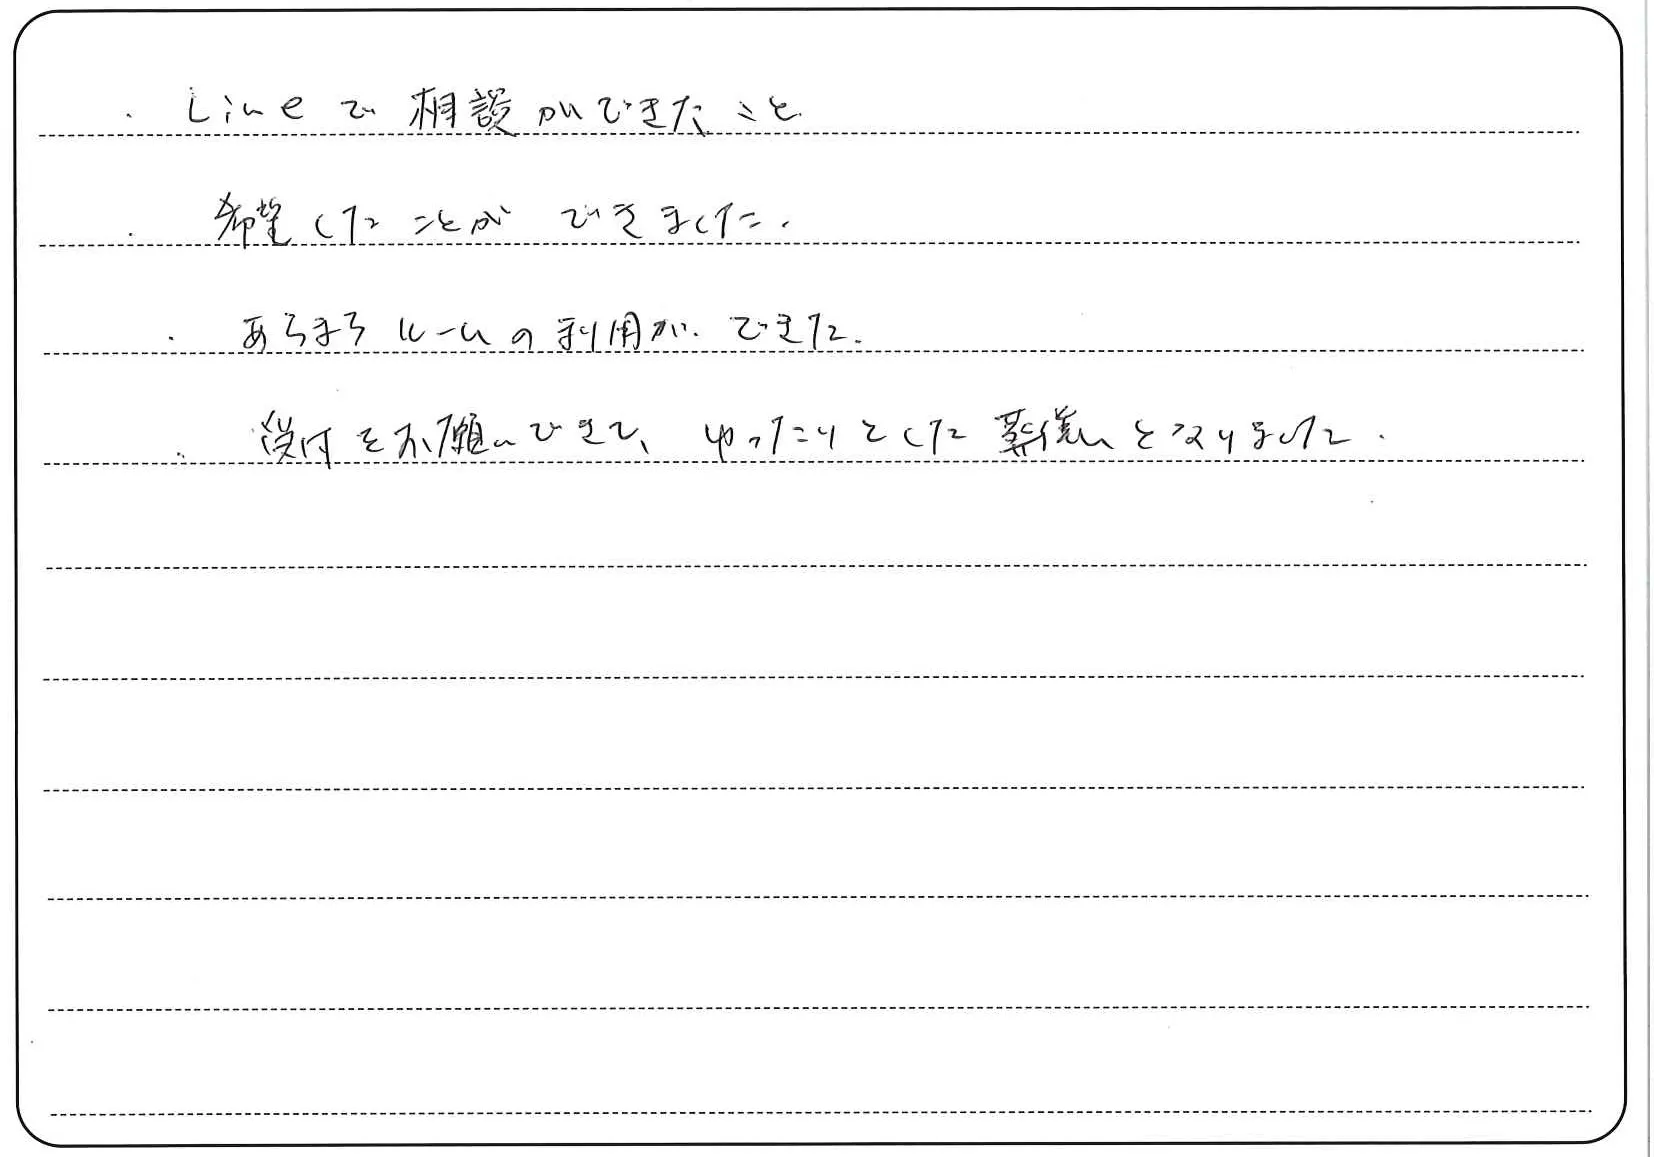 ・Lineで相談ができたこと
・希望したことができました.
・あらまろルームの利用が.できた.
・受付をお願いできて、ゆったりとした葬儀となりました.